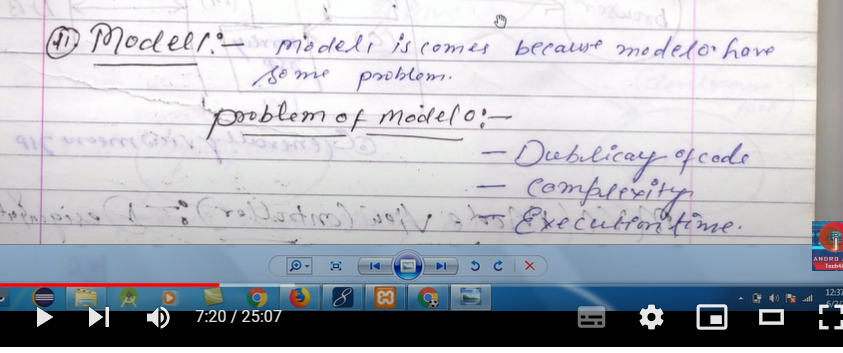 (ii) Model1:- model1 is comes because model0 have
some problem.
problem of model0:-
- Dublicay of code
- Complexity
- Execution time.
ANDRO
Tech4
12:37
7:20 / 25:07